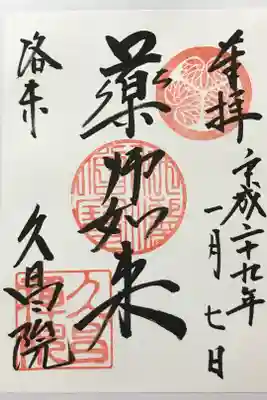 奉拝
平成二十九年
一月七日
薬師如来
洛東
久昌院